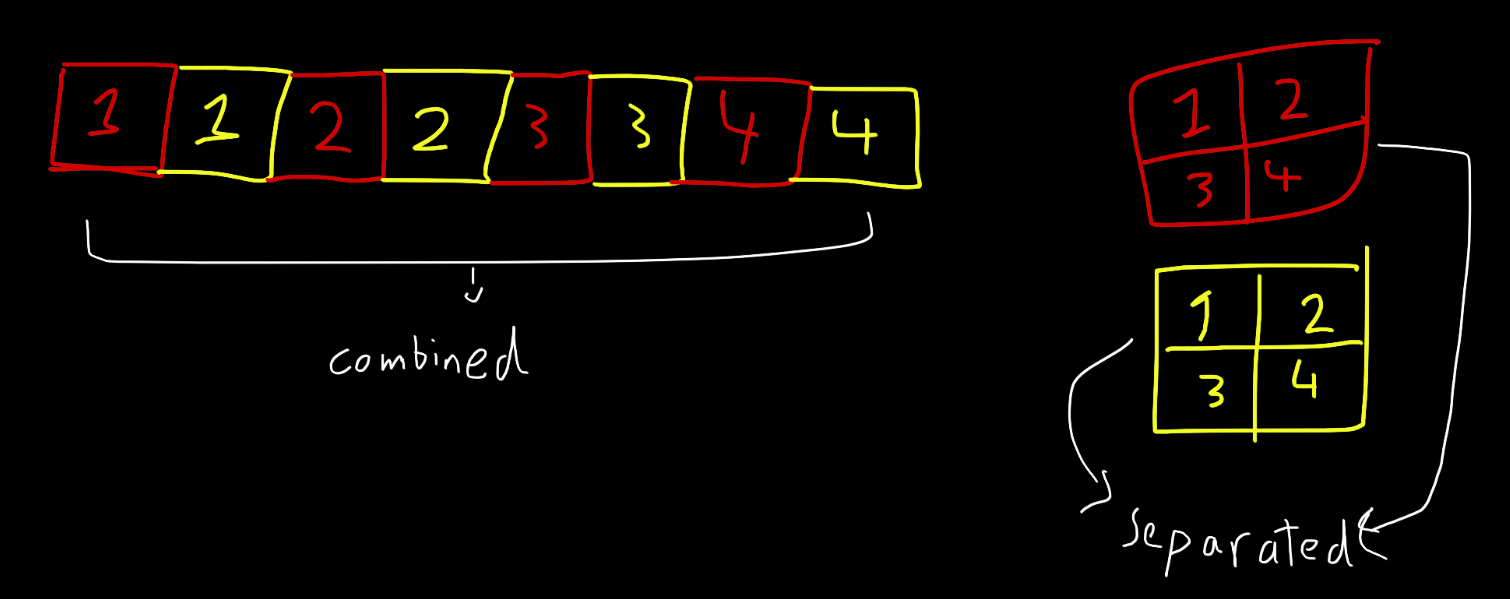 1 1 2 2 3 3 4 4
combined
1 2
3 4
1 2
3 4
separated